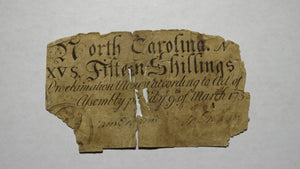 North Carolina. N
XVS. Fifteen Shillings
Proclamation Money according to Act of
Assembly 9 of March 175